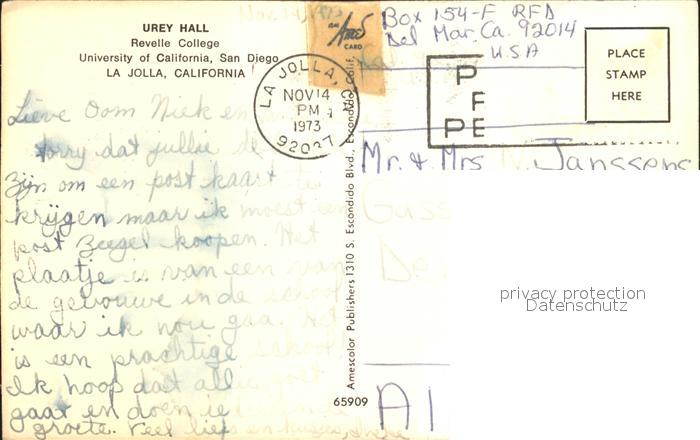 Nov. 14, 1973
UREY HALL
Revelle College
University of California, San Diego
LA JOLLA, CALIFORNIA
AN Ames CARD
Box 154-F RFD
Del Mar, Ca. 92014
U.S.A
LA JOLLA, CA
NOV 14
PM
1973
92037
P
F
PE
PLACE
STAMP
HERE
Lieve Oom Niek en
sorry dat jullie de
zijn om een post kaart te
krijgen maar ik moest en
post Zeegel koopen. Het
plaatje is van een van
de gebouwe in de school
waar ik nou gaa. Het
is een prachtige school.
Ik hoop dat alles goet
gaat en doen
groete. Veel liefs en kusjes,
Mr. & Mrs N. Janssens
Gass
De
Al
Amescolor Publishers 1310 S. Escondido Blvd., Escondido, Calif.
65909
privacy protection
Datenschutz